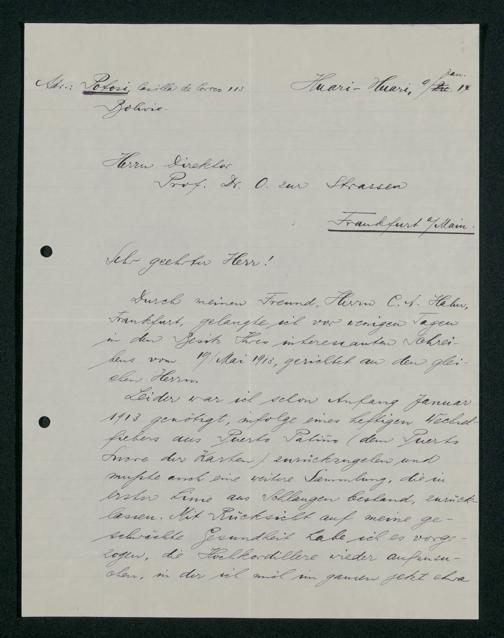 Adr.: Potosi, Casilla de Correo 113
Bolivia.
Huari-Huari, 9/Jan. 14
Herrn Direktor
Prof. Dr. O. zur Strassen
Frankfurt a/Main.
Sehr geehrter Herr!
Durch meinen Freund, Herrn C. A. Hahn,
Frankfurt, gelangte ich vor wenigen Tagen
in den Besitz Ihres interessanten Schrei-
bens vom 19/Mai 1913, gerichtet an den glei-
chen Herrn.
Leider war ich schon Anfang Januar
1913 genötigt, infolge eines heftigen Wechsel-
fiebers aus Puerto Patiño (dem Puerto
der Karten) zurückzugehen und
mußte auch eine weitere Sammlung, die in
erster Linie aus Schlangen bestand, zurück-
lassen. Mit Rücksicht auf meine ge-
schwächte Gesundheit habe ich es vorge-
zogen, die Hochkordillere wieder aufzusu-
chen, in der ich mich im ganzen jetzt etwa